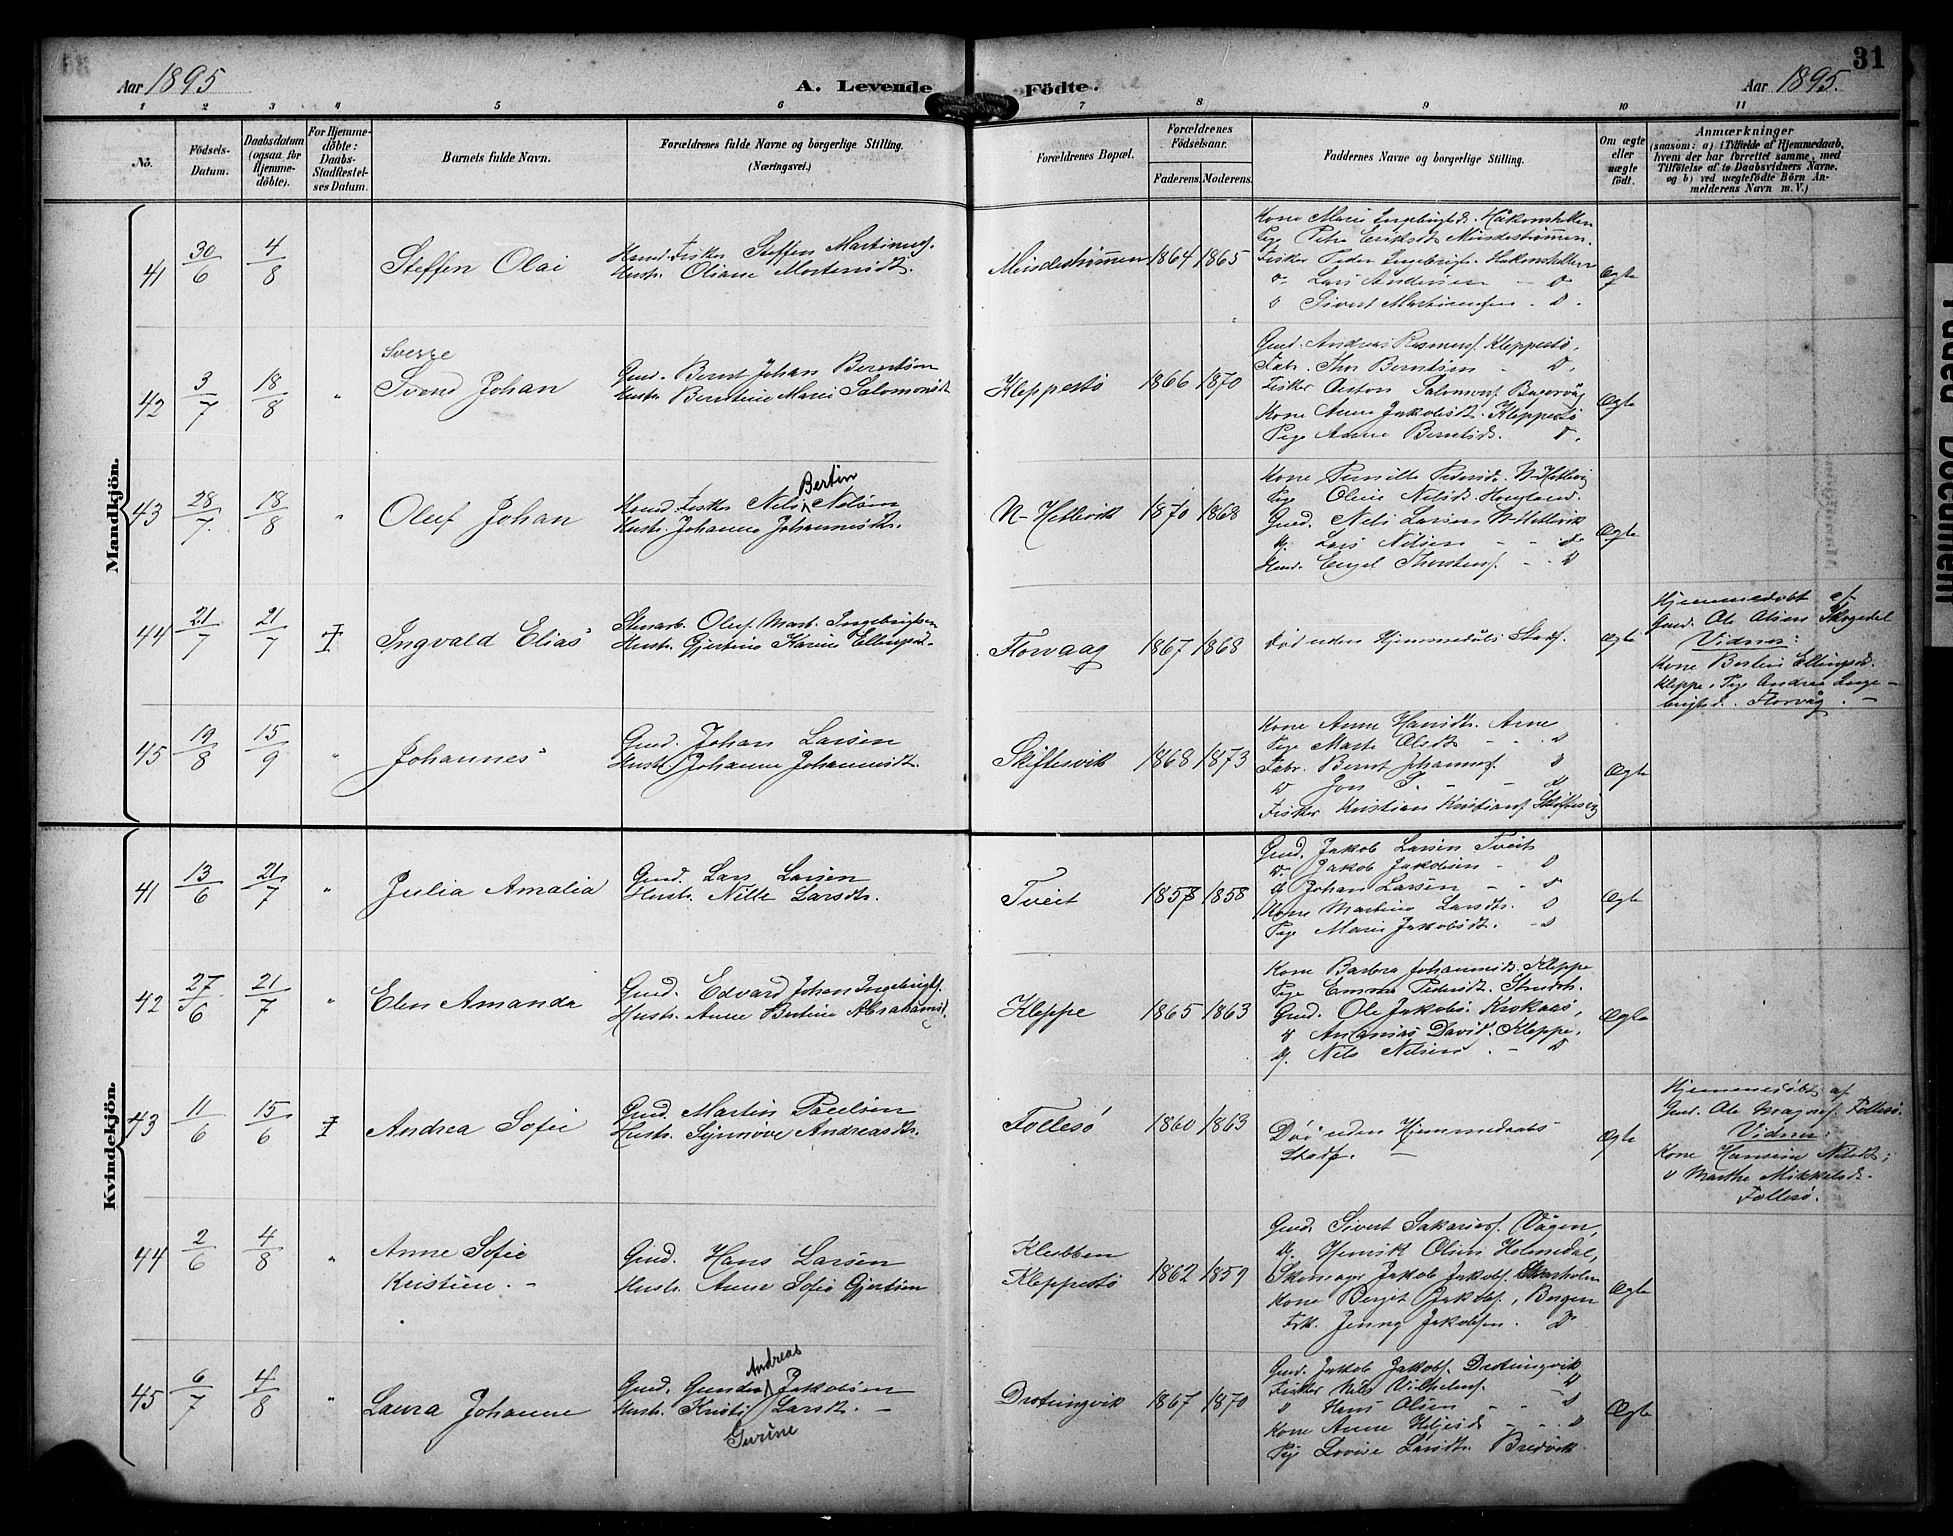 31
Aar 1895
A. Levende Födte.
Aar 1895.
1 2 3 4 5 6 7 8 9 10 11
No.
Födsels-Datum.
Daabsdatum (ogsaa for Hjemme-döbte).
For Hjemme-döbte: Daabs-Stadfestel-ses Datum.
Barnets fulde Navn.
Forældrenes fulde Navne og borgerlige Stilling.
(Næringsvei.)
Forældrenes Bopæl.
Forældrenes Födselsaar.
Faderens. Moderens.
Faddernes Navne og borgerlige Stilling.
Om ægte eller uægte født.
Anmærkninger
(saasom: a) i Tilfælde af Hjemmedaab,
hvem der har forrettet samme, med
Tilföielse af to Daabsvidners Navne.
og b) ved uægtefödte Börn An-
melderens Navn m. V.)
Mandkjön.
41 30/6 4/8
Steffen Olai
Huusd. Fisker Steffen Martinus.
Hustr. Oliane Mortensdt.
1864 1865
Kone Marie Ingebrigtsd. Håkonshellen
Pige Petra Eriksdt
Fisker Peder Ingebrigts. Hakonshellen
D. Lars Andersen - D.
D Sivert Martinussen . D.
Ægte
42 3/7 18/8 "
Sverre
Svend Johan
Gmd. Bernt Johan Berntsen
Hustr. Berntine Marie Salomonsdt
Kleppestø
1866 1870
Gmd. Andreas Rasmus. Kleppestø,
Fabr. Thor Berntsen - D.
Fisker Anton Salomons.
Kone Anne Jakobsdt. Kleppestø
Pige Anna Berntsd. D.
Ægte
43 28/7 18/8 "
Oluf Johan
Bertin
Huusd. Fisker Nils Nelson
Hustr. Johanne Johannesdt.
N-Hetlevik
1870 1868
Kone Pernille Pedersd. N-Hetlevig
Pige Oline Nelsdt.
Gmd. Nels Larsen N-Hetlevik
D. Lars Nilsen - - D
Huusd. Engel Thorstens. - - D
Ægte
44 21/7 21/7 I
Ingvald Elias
Oluf Mart. Ingebrigtsen
Hustr. Gjertine Karine Ellingsd.
Florvaag
1867 1868
Død uden Hjemmedåbs Stadf.
Ægte
Hjemmedøbt af
Gmd. Ole Olsen
Vidner:
Kone Bertine Ellingsd.
Kleppe, Pige Andrea Inge-
brigtsd. Florvåg. -
45 19/8 15/9 "
Johannes
Gmd. Johan Larsen
Hustr. Johanne Johannesdt.
Skiftesvik
1868 1873
Kone Anne Hansdtr. Arne
Pige Marte Olsdt - - D
Fabr. Bernt Johannes. D
D Jon P. - - D
Fisker Kristian Kristians. Skiftesvig
Ægte
Kvindekjön.
41 13/6 21/7 "
Julia Amalia
Gmd. Lars Larsen
Hustr. Nille Larsdtr.
Tveit
1858 1858
Gmd. Jakob Larsen Tveit
D. Jakob Jakobsen - D
D Johan Larsen - - D
Kone Martine Larsdtr. D
Pige Marie Jakobsdt. - D
Ægte
42 27/6 21/7 "
Elen Amanda
Gmd. Edvard Johan Ingebrigts.
Hustr. Anne Bertine Abrahamsd.
Kleppe
1865 1863
Kone Barbra Johannesdt. Kleppe
Pige Emma Pedersdt.
Gmd. Ole Jakobs. Krokaas,
D Ananias David. Kleppe.
D. Nils Nelsen . - D
Ægte
43 11/6 15/6 I
Andrea Sofie
Gmd. Martin Paulsen
Hustr. Synnøve Andreasdtr.
Follesø
1860 1863
Død uden Hjemmedaabs-
Stadf. -
Ægte
Hjemmedøbt af
Gmd. Ole Magnus. Follesø.
Vidner:
Kone Hansine Nilsdt.;
D Marthe Mikkelsdt.
Follesø.
44 2/6 4/8 "
Anne Sofie
Kristine. -
Gmd. Hans Larsen
Hustr. Anne Sofie Gjertsen
Klubben
Kleppestø
1862 1859
Gmd. Sivert Sakarias. Vågen,
D. Henrik Olsen Holmedal,
Skomager Jakob Jakobs.
Kone Berget Jakobs., Bergen
Frk. Jenny Jakobsen. D
Ægte
45 6/7 4/8 "
Laura Johanne
Andreas
Gmd. Gunder Jakobsen
Hustr. Kristi Larsdt. -
Gurine
Drotningvik
1867 1870
Gmd. Jakob Jakobs. Drotningvik
Fisker Nils Vilhelms. - D
D Hans Olsen - - D
Kone Anne Heljesd. - - D
Pige Lovise Larsdtr Bredvik
Ægte